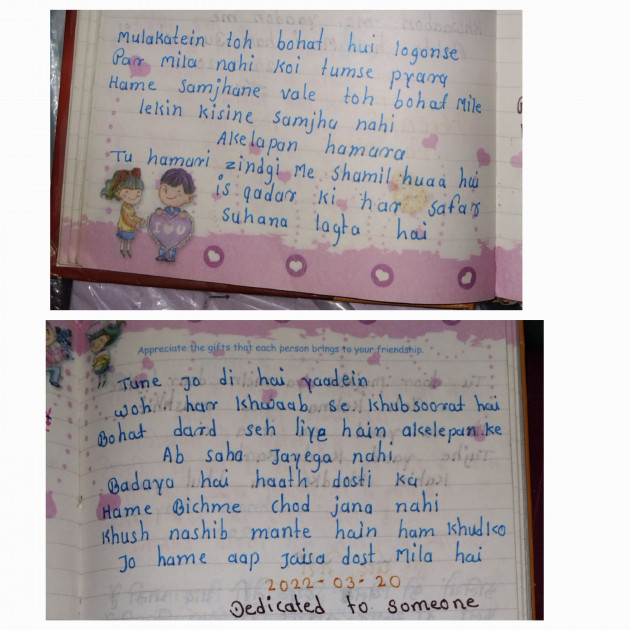 Mulakatein toh bohat hui logonse
Par mila nahi koi tumse pyara
Hame samjhane vale toh bohat mile
lekin kisine samjha nahi
Akelapan hamara
Tu hamari zindgi me shamil huaa hai
is qadar ki har safar
suhana lagta hai
I ♥ U
Appreciate the gifts that each person brings to your friendship.
Tune jo di hai yaadein
woh har khwaab se khubsoorat hai
Bohat dard seh liye hain akelepan ke
Ab saha Jayega nahi
Badaya hai haath dosti ka
Hame Bichme chod jana nahi
Khush nashib mante hain ham khudko
Jo hame aap jaisa dost mila hai
2022-03-20
Dedicated to someone